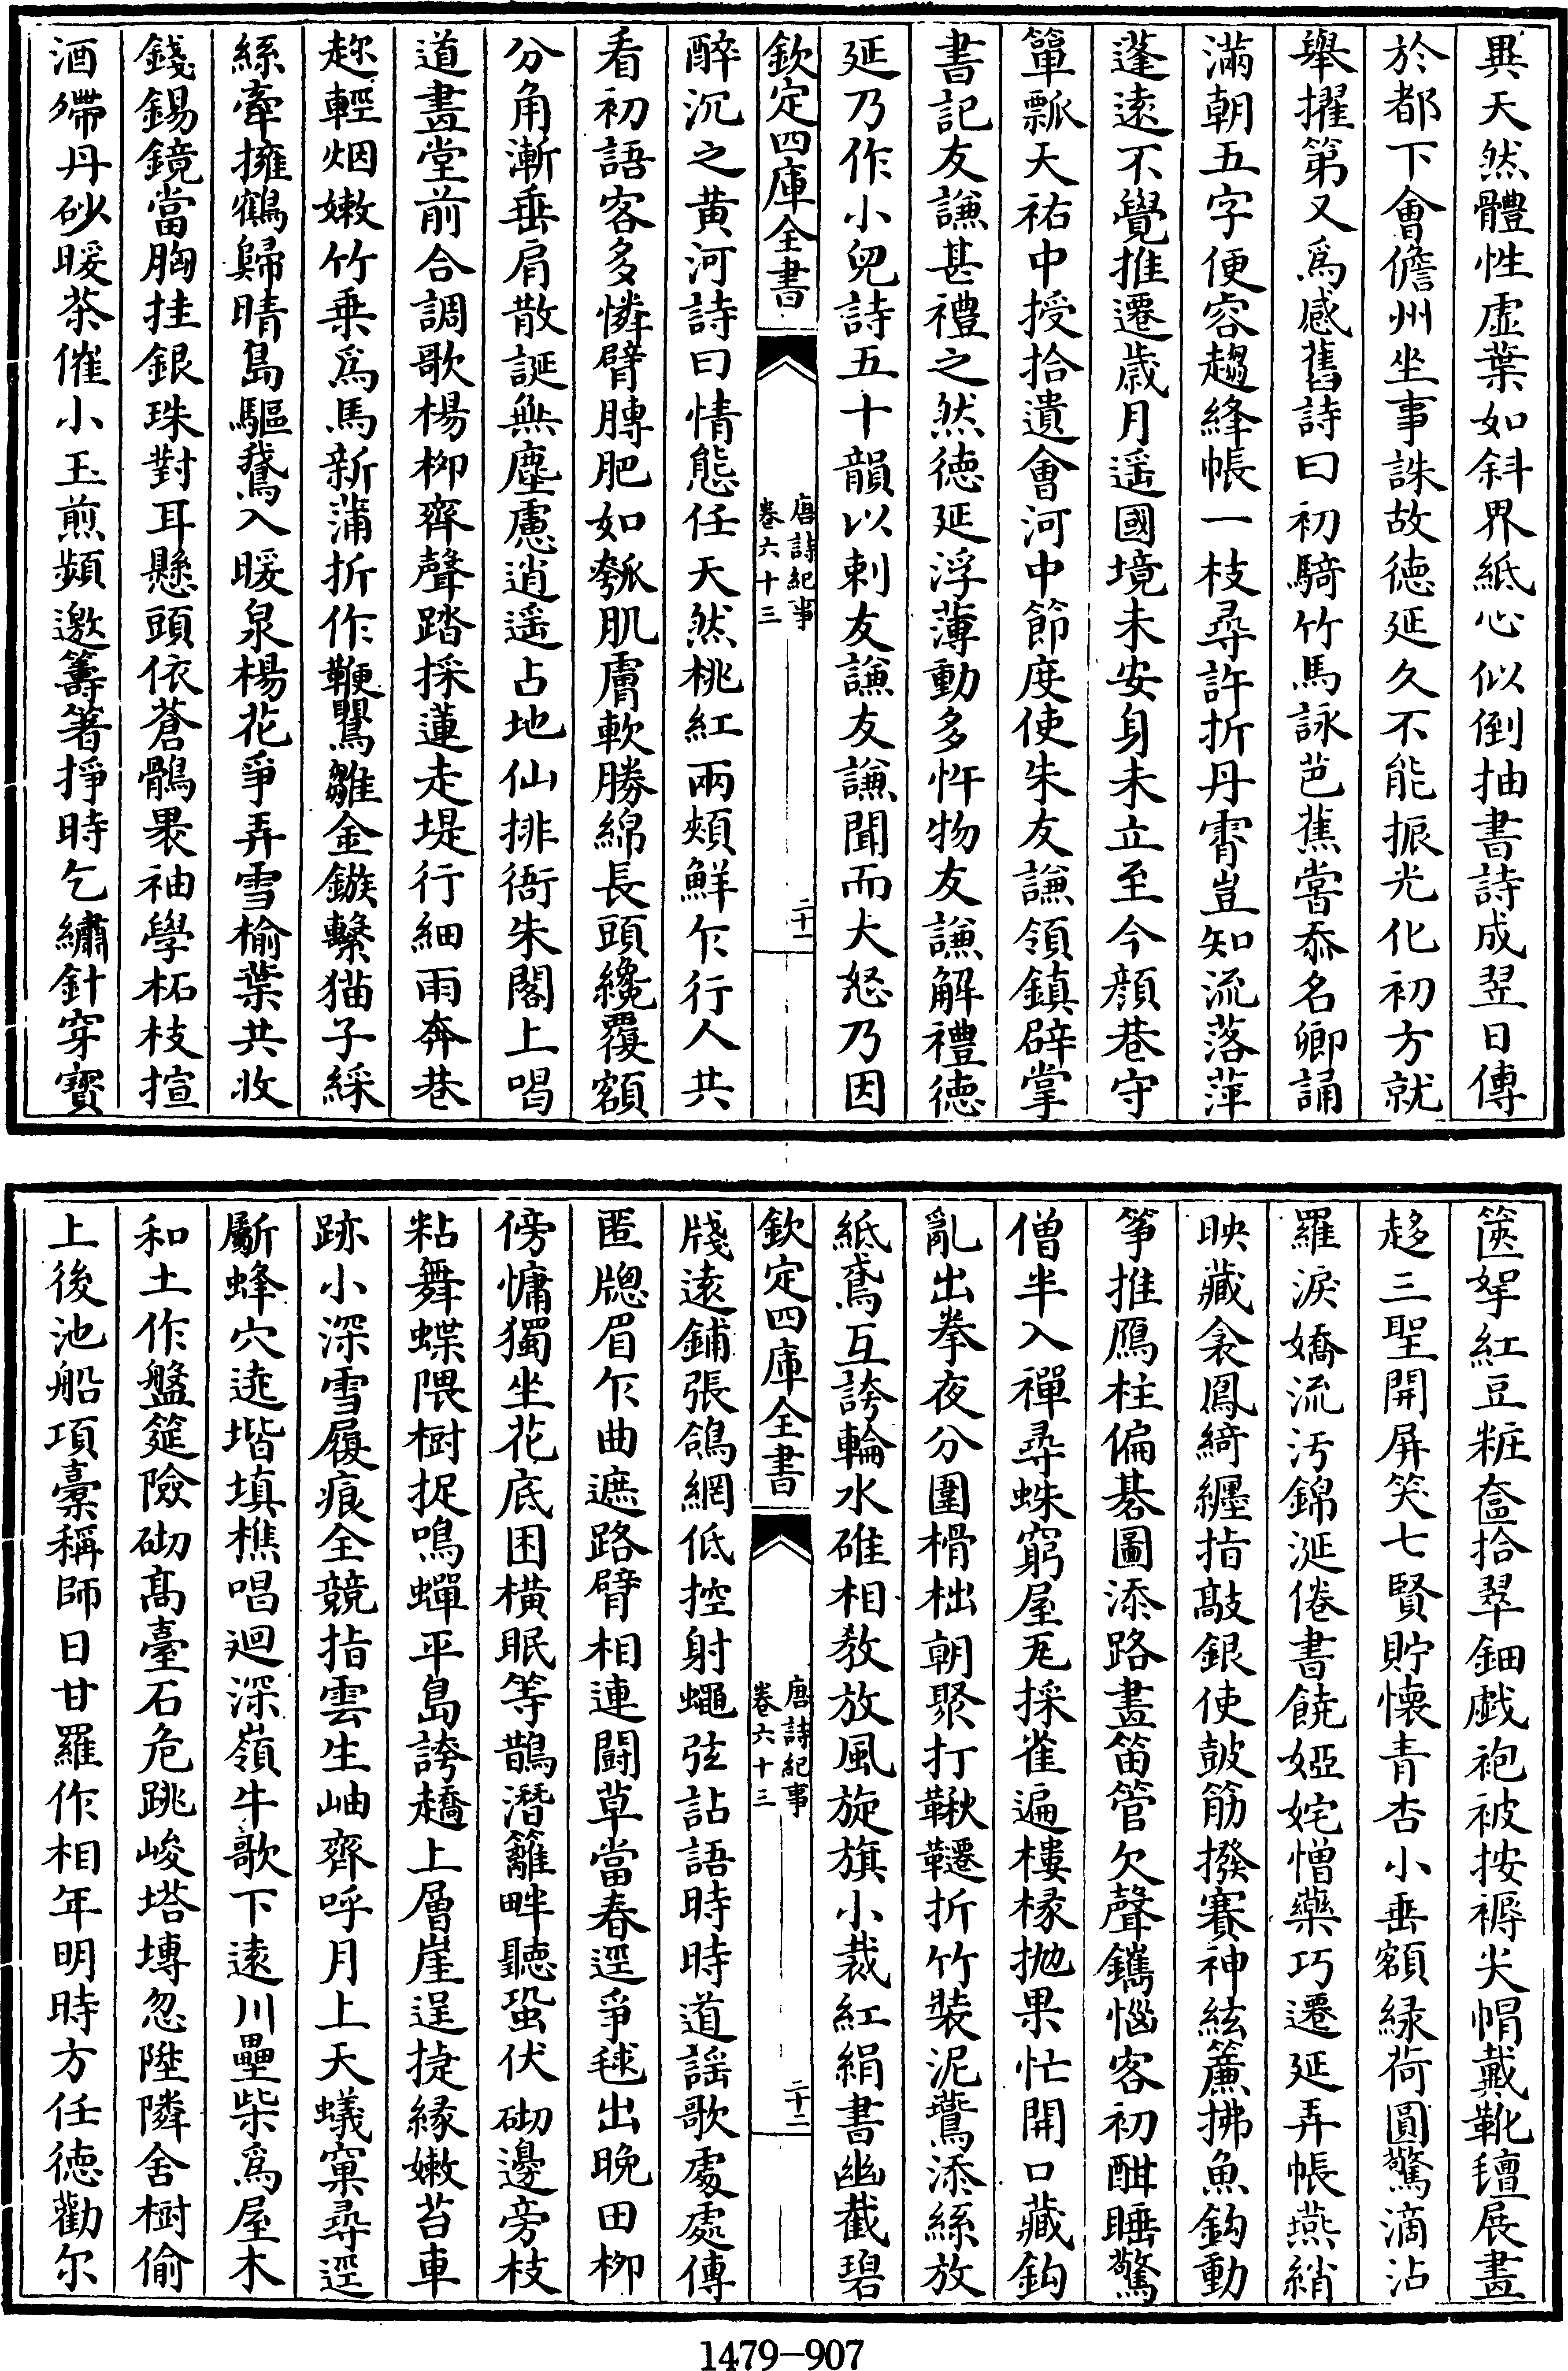 異天然體性虚葉如斜界紙心似倒抽書詩成翌日傳
於都下會儋州坐事誅故徳延久不能振光化初方就
舉擢第又爲感舊詩曰初騎竹馬詠芭蕉嘗忝名卿誦
滿朝五字便容趨絳帳一枝尋許折丹霄豈知流落萍
蓬逺不覺推遷歲月遥國境未安身未立至今顔巷守
簞瓢天祐中授拾遺會河中節度使朱友謙領鎮辟掌
書記友謙甚禮之然徳延浮薄動多忤物友謙解禮徳
延乃作小兒詩五十韻以刺友謙友謙聞而大怒乃因
欽定四庫全書
唐詩紀事
卷六十三
二十一
醉沉之黄河詩曰情態任天然桃紅兩頰鮮乍行人共
看初語客多憐臂膊肥如瓠肌膚軟勝綿長頭纔覆額
分角漸垂肩散誕無塵慮逍遥占地仙排衙朱閣上唱
道畫堂前合調歌楊栁齊聲踏採蓮走堤行細雨奔巷
趂輕烟嫩竹乗爲馬新蒲折作鞭鸎雛金鏃繫猫子綵
絲牽擁鶴歸晴島驅鵞入暖泉楊花爭弄雪榆葉共收
錢錫鏡當胸挂銀珠對耳懸頭依蒼鶻褁袖學柘枝揎
酒殢丹砂暖茶催小玉煎頻邀籌箸掙時乞繡針穿寳
篋拏紅豆粧奩拾翠鈿戯袍被按褥尖帽戴靴氊展畫
趍三聖開屏笑七賢貯懐青杏小垂額緑荷圓驚滴沾
羅淚嬌流汚錦涎倦書饒婭姹憎藥巧遷延弄帳燕綃
映藏衾鳳綺纒指敲銀使皷筋撥賽神絃簾拂魚鈎動
筝推鴈柱偏碁圖添路畫笛管欠聲鐫惱客初酣睡驚
僧半入禪尋蛛窮屋瓦採雀遍樓椽拋果忙開口藏鈎
亂出拳夜分圍榾柮朝聚打鞦韆折竹裝泥鷰添絲放
紙鳶互誇輪水碓相教放風旋旗小裁紅絹書幽截碧
欽定四庫全書
唐詩紀事
卷六十三
二十二
牋逺鋪張鴿網低控射蠅弦詀語時時道謡歌處處傳
匿牎眉乍曲遮路臂相連鬬草當春逕爭毬出晩田栁
傍慵獨坐花底困横眠等鵲潛籬畔聽蛩伏砌邊旁枝
粘舞蝶隈樹捉鳴蟬平島誇趫上層崖逞捷縁嫩苔車
跡小深雪履痕全競指雲生岫齊呼月上天蟻窠尋逕
斸蜂穴遶堦填樵唱迴深嶺牛歌下逺川壘柴爲屋木
和土作盤筵險砌髙臺石危跳峻塔塼忽陞隣舍樹偷
上後池船項橐稱師日甘羅作相年明時方任徳勸尔
1479-907